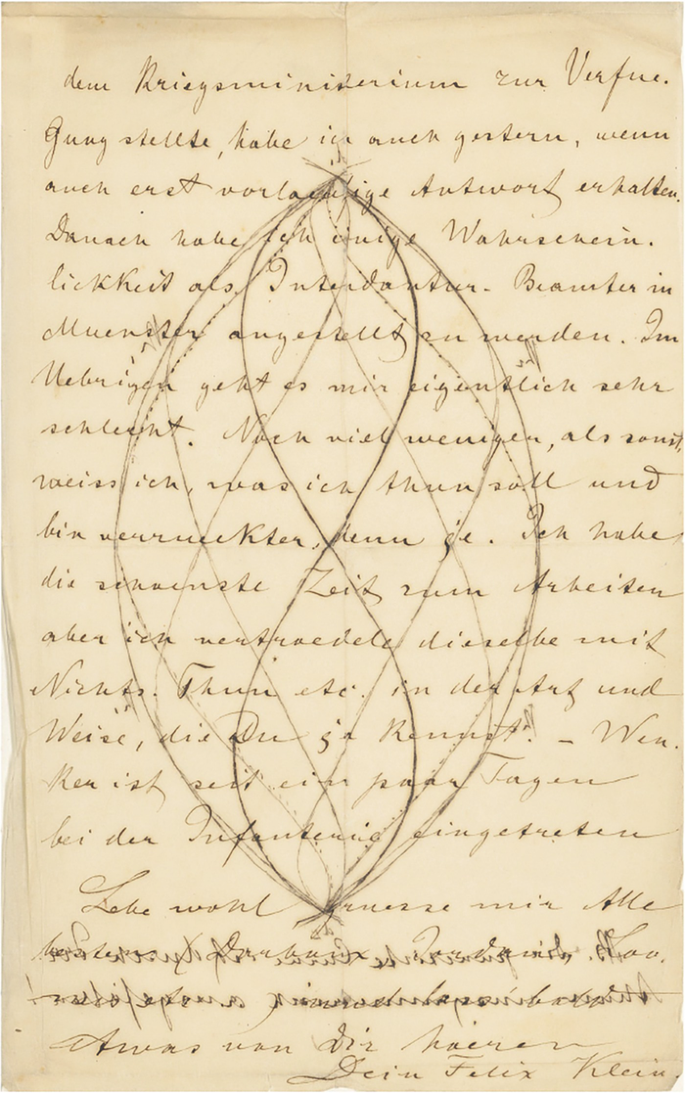 dem Kriegsministerium zur Verfue.
gung stellte, habe ich auch gestern, wenn
auch erst vorlaeufige Antwort erhalten.
Danach habe ich einige Wahrschein.
lickkeit als Intendantur-Beamter in
Muenster angestellt zu werden. Im
Uebrigen geht es mir eigentlich sehr
schlecht. Noch viel weniger, als sonst,
weiss ich, was ich thun soll und
bin verrueckter, denn je. Ich habe
die schoenste Zeit zum Arbeiten
aber ich vertroedele dieselbe mit
Nichts-Thun etc. in der Art und
Weise, die Du ja kennst. – Wen.
ker ist seit ein paar Tagen
bei der Infanterie eingetreten
Lebe wohl Gruesse mir Alle
bestens Darboux Jordan
etwas von Dir hoeren
Dein Felix Klein.